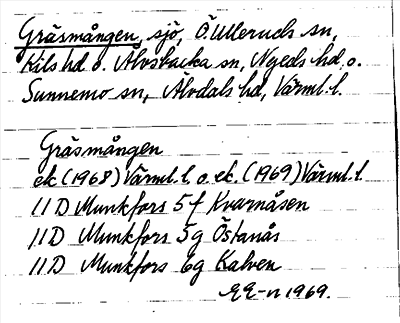 Gräsmången, sjö, Ö. Ullerud sn,
Kils hd o. Älvsbacka sn, Nyeds hd o.
Sunnemo sn, Älvdals hd, Värml. l.
Gräsmången
ek (1968) Värml. l. o. ek. (1969) Värml. l.
11 D Munkfors 5 f Kvarnåsen
11 D Munkfors 5g Östanås
11 D Munkfors 6g Kalven
1969.